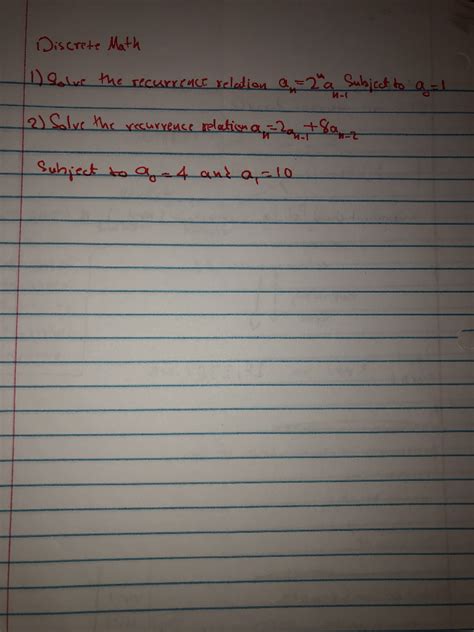 Discrete Math
1) Solve the recurrence relation aₙ=2ⁿaₙ₋₁ Subject to a₀=1
2) Solve the recurrence relation aₙ=2aₙ₋₁+8aₙ₋₂
Subject to a₀=4 and a₁=10